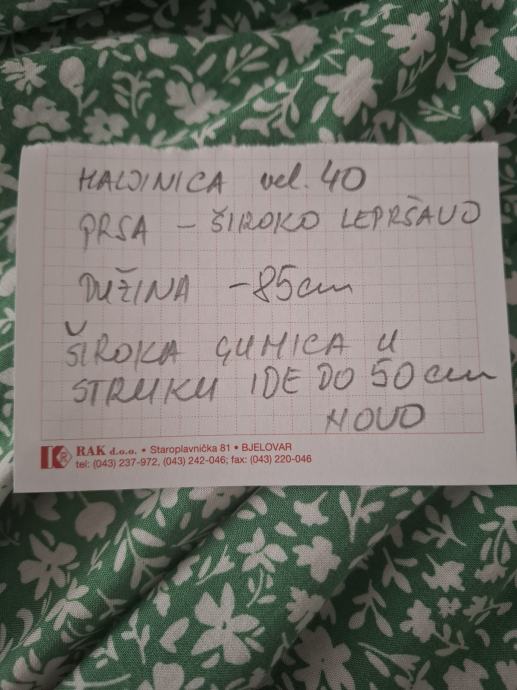 HALJINICA vel. 40
PRSA - ŠIROKO LEPRŠAVO
DUŽINA - 85cm
ŠIROKA GUMICA U
STRUKU IDE DO 50cm
NOVO
RAK d.o.o. • Staroplavnička 81 • BJELOVAR
tel: (043) 237-972, (043) 242-046; fax: (043) 220-046